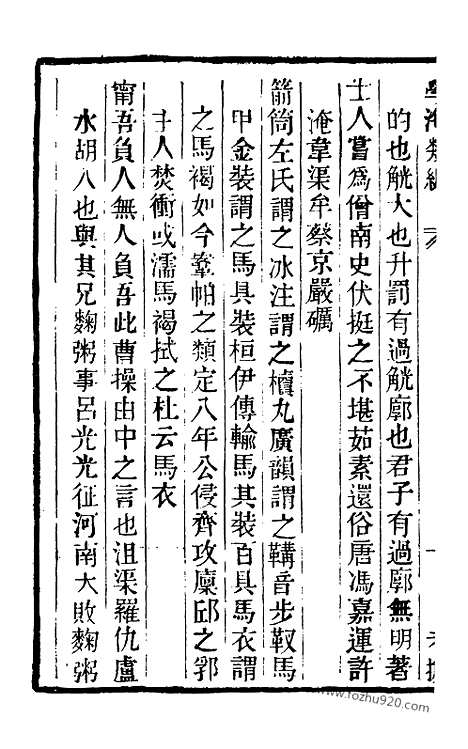 的也觥大也升罰有過觥廓也君子有過廓無明著
士人嘗為僧南史伏挺之不堪茹素還俗唐馮嘉運許
淹韋渠牟蔡京嚴礪
箭筒左氏謂之冰注謂之櫝丸廣韻謂之鞴音步靫馬
甲金裝謂之馬具裝桓伊傳輸馬其裝百具馬衣謂
之馬褐如今鞌帕之類定八年公侵齊攻廩邱之郛
主人焚衝或濡馬褐拭之杜云馬衣
甯吾負人無人負吾此曹操由中之言也沮渠羅仇盧
水胡人也與其兄麴粥事呂光光征河南大敗麴粥
www.fozhu920.com